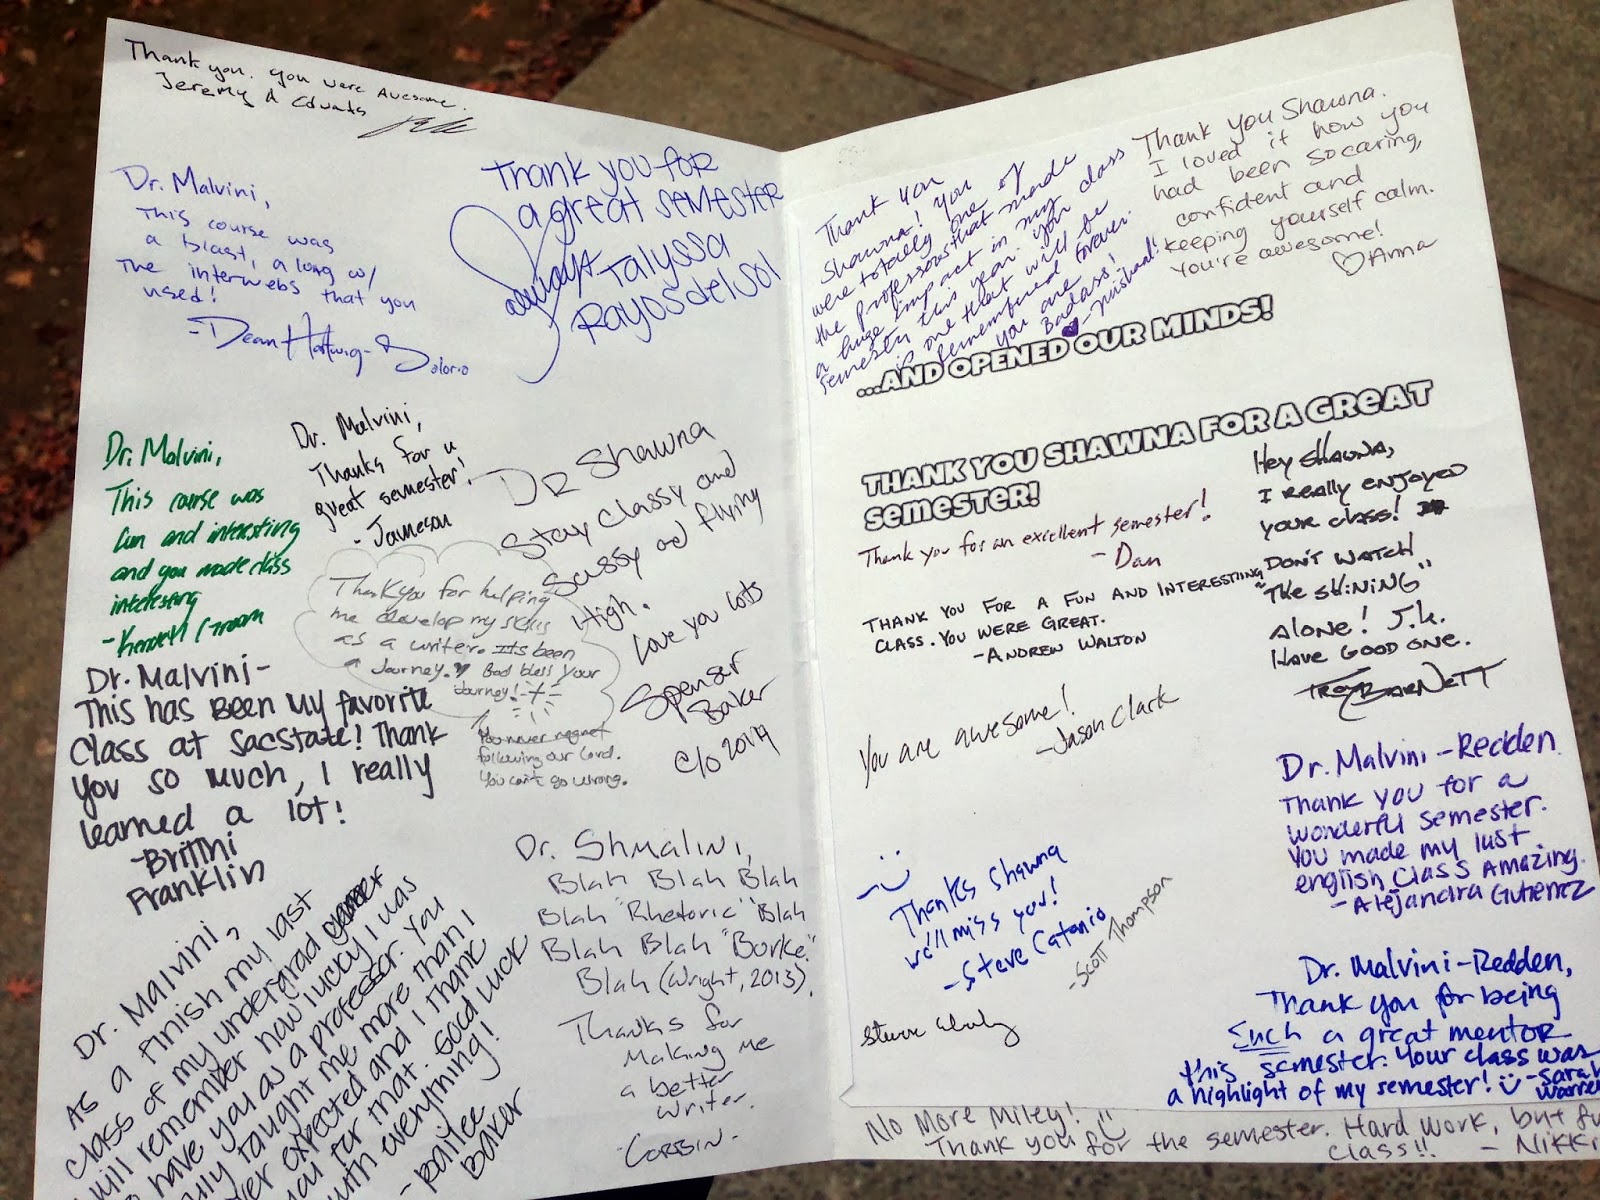 Thank you. you were Awesome.
Jeremy A Edwards
Dr. Malvini,
This course was
a blast, along w/
the interwebs that you
used!
-Dean Hartwig-
Thank you for
a great semester
always
Talyssa
Rayosdelsol
Dr. Malvini,
This course was
fun and interesting
and you made class
interesting
-Kendell Groom
Dr. Malvini,
Thanks for a
great semester!
- Jameson
Dr Shawna
Stay Classy and
Sassy ad flying
High.
Love you lots
Spenser
Baker
c/o 2014
Thank you for helping
me develop my skills
as a writer. Its been
a Journey. God bless your
Journey!
You never regret
following our Lord.
You can't go wrong.
Dr. Malvini-
This has been my favorite
class at SacState! Thank
you so much, I really
learned a lot!
-Brittni
Franklin
Dr. Malvini,
As a finish my last
class of my undergrad
will remember how lucky I was
have you as a professor. You
taught me more than I
expected and I thank
you for that. Good luck
with everything!
- Bailee
Baker
Dr. Shmalini,
Blah Blah Blah
Blah "Rhetoric" Blah
Blah Blah "Burke."
Blah (Wright, 2013).
Thanks for
making me
a better
writer.
-Corbin-
Thank you
Shawna! You
were totally one of
the professors that made
a huge impact in my
semester this year. Your class
is one that will be
remembered forever.
You are
Badass!
Thank you Shawna.
I loved it how you
had been so caring,
confident and
keeping yourself calm.
You're awesome!
♡Anna
...AND OPENED OUR MINDS!
THANK YOU SHAWNA FOR A GREAT
SEMESTER!
Thank you for an excellent semester!
- Dan
THANK YOU FOR A FUN AND INTERESTING
CLASS. YOU WERE GREAT.
-ANDREW WALTON
Hey Shawna,
I really enjoyed
your class!
Don't watch
"The Shining"
alone! J.k.
Have good one.
Troy Barnett
You are awesome!
-Jason Clark
Dr. Malvini-Redden
Thank you for a
wonderful semester.
You made my last
english class Amazing.
- Alejandra Gutierrez
Thanks Shawna
we'll miss you!
-Steve Catanio
-Scott Thompson
Dr. Malvini-Redden,
Thank you for being
Such a great mentor
this semester. Your class was
a highlight of my semester! -Sarah
Warren
No More Miley!
Thank you for the semester. Hard work, but
class!! - Nikki